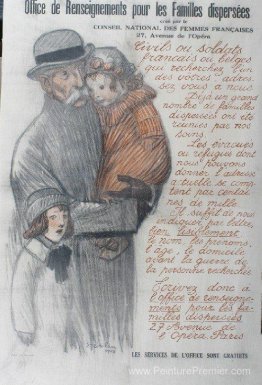 Office de Renseignements pour les Familles dispersées
créé par le
CONSEIL NATIONAL DES FEMMES FRANÇAISES
27, Avenue de l'Opéra
Civils ou soldats
français ou belges
qui recherchez l'un
des vôtres adres
sez vous a nous
Déjà un grand
nombre de familles
dispersées ont été
réunies par nos
soins.
Les évacués
ou réfugiés dont
nous pouvons
donner l'adresse
actuelle se comp
tent par centai
nes de mille
Il suffit de nous
indiquer par lettre,
bien lisiblement
le nom, les prénoms,
l'age, le domicile
avant la guerre de
la personne recherchée
Ecrivez donc à
l'office de renseigne-
ments pour les fa-
milles dispersées
27 Avenue de
l'Opéra Paris
LES SERVICES DE L'OFFICE SONT GRATUITS
www.PeinturePremier.com